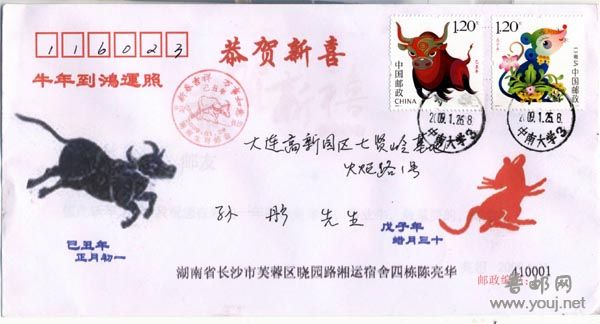 116023
恭贺新喜
牛年到鸿運照
1.20元
中国邮政
CHINA
己丑年
1.20元
中国邮政
CHINA
2009.1.25.8
中南大学3
2009.1.25.8
中南大学3
大连高新园区七贤岭基地
火炬路1号
孙彤 先生
己丑年
正月初一
戊子年
腊月三十
湖南省长沙市芙蓉区晓园路湘运宿舍四栋陈亮华
邮政编码:
410001
www.youj.net